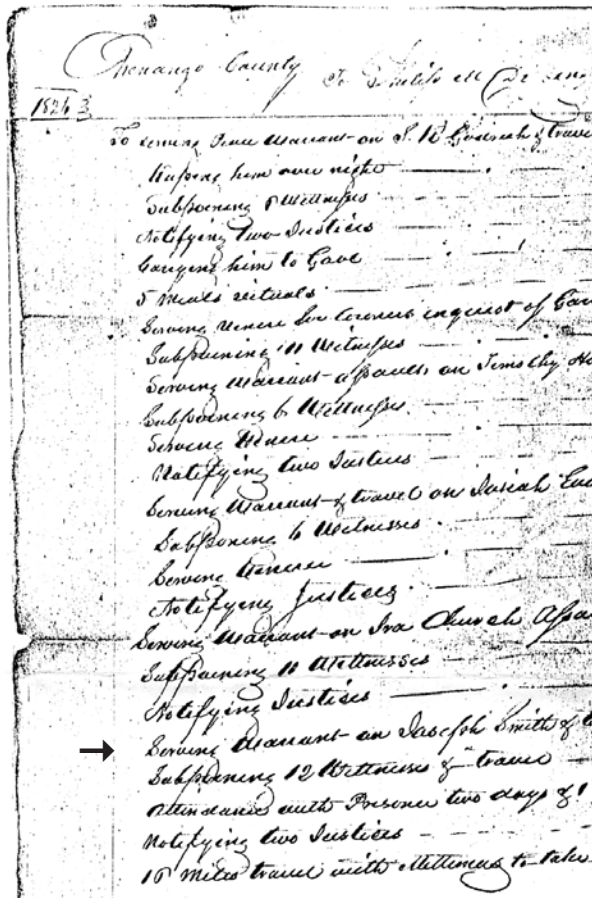 Chenango County To Philip M De
1826
To serving Peace Warrant on S. H. & trave
Keeping him over night
Subpoening 8 Wittnesses
Notifying two Justices
Carrying him to Gaol
5 Meals vituals
Serving Venire for inquest of
Subpoening 11 Witnesses
Serving Warrant assault on Timothy Ho
Subpoening 6 Wittnesses
Serving Venire
Notifying two Justices
Serving Warrant & travel on Josiah
Subpoening 6 Witnesses
Serving Venire
Notifying Justices
Serving Warrant on Ira Church Assa
Subpoening 11 Wittnesses
Notifying Justices
Serving Warrant on Joseph Smith & t
Subpoening 12 Wittnesses & travel
Attendance with Prisoner two days & 1
Notifying two Justices
10 miles travel with Mittimus to take